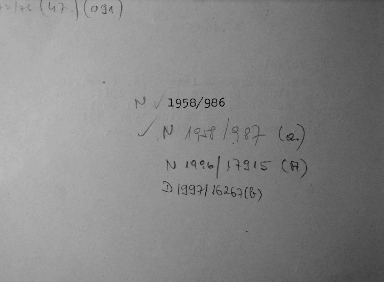 (47)(091)
N ✓ 1958/986
✓ N 1958/987 (a)
N 1996/17915 (A)
D 1997/16267(b)